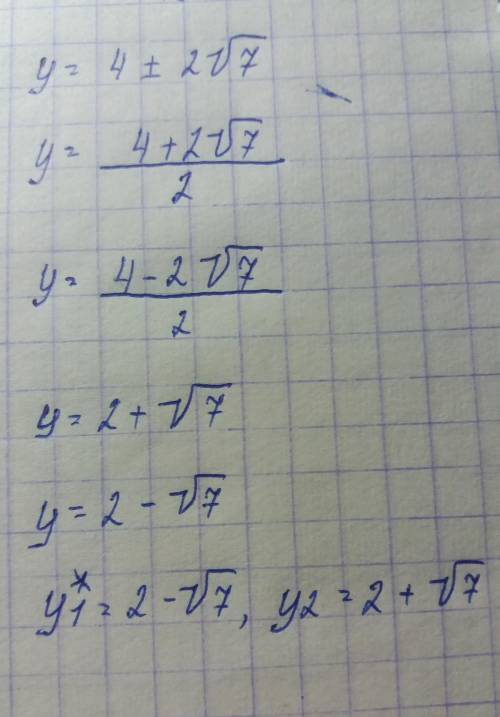 y = 4 ± 2√7
y = (4 + 2√7)/2
y = (4 - 2√7)/2
y = 2 + √7
y = 2 - √7
y1* = 2 - √7, y2 = 2 + √7